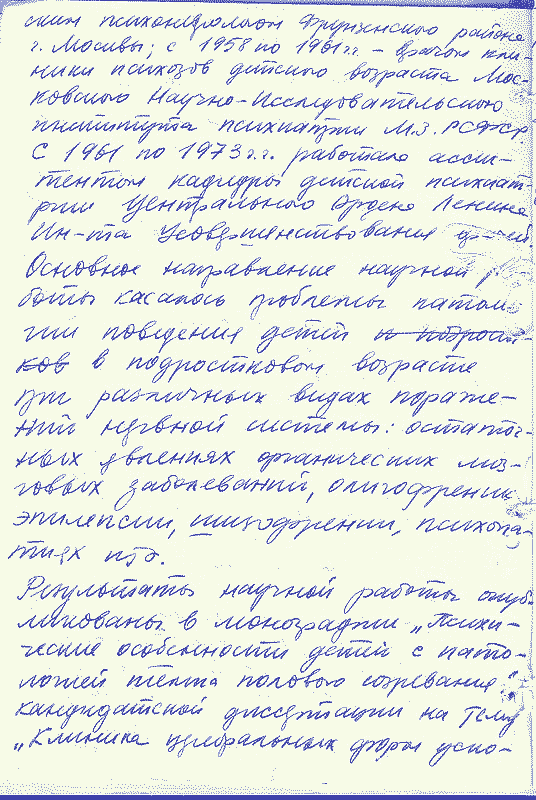 ским психоневрологом Фрунзенского района
г. Москвы; с 1958 по 1961 гг. – врачом кли-
ники психозов детского возраста Мос-
ковского Научно-Исследовательского
института психиатрии М.З. РСФСР.
С 1961 по 1973 г.г. работала ассис-
тентом кафедры детской психиат-
рии Центрального Ордена Ленина
Ин-та Усовершенствования врачей.
Основное направление научной ра-
боты касалось проблемы патоло-
гии поведения детей и подрост-
ков в подростковом возрасте
при различных видах пораже-
ний нервной системы: остаточ-
ных явлениях органических моз-
говых заболеваний, олигофрении,
эпилепсии, шизофрении, психопа-
тиях и др.
Результаты научной работы опуб-
ликованы в монографии „Психи-
ческие особенности детей с пато-
логией темпа полового созревания",
кандидатской диссертации на тему
„Клиника церебральных форм уско-